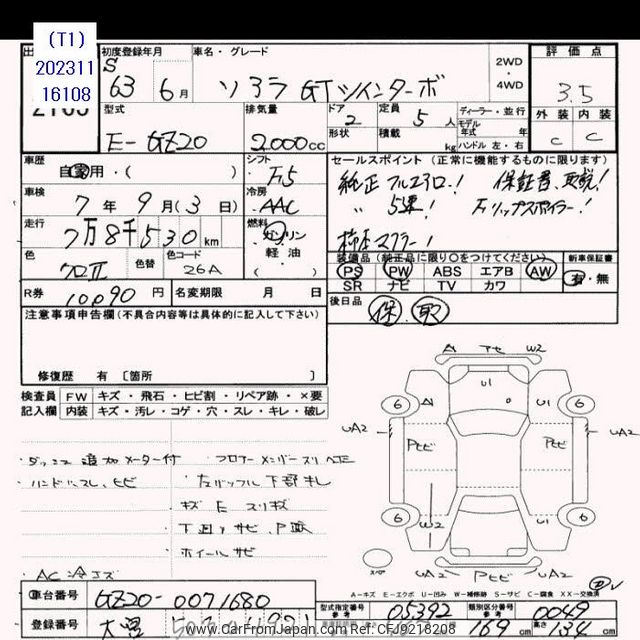 (T1)
202311
16108
初度登録年月
S
63 6月
車名・グレード
ソアラ GTツインターボ
2WD
・
4WD
評価点
3.5
外装 内装
C C
型式
E-GZ20
排気量
2,000cc
ドア
2
形状
定員
5人
積載 kg
ディーラー・並行
モデル
年式 年
ハンドル 左・右
車歴
自家用・( )
シフト
F5
車検
7年9月(3日)
冷房
AAC
走行
7万8千530km
燃料
ガソリン
軽油
色
クロⅡ
色替
色コード
26A
R券 10,090円
名変期限 月 日
セールスポイント(正常に機能するものに限ります)
純正フルエアロ! 保証書、取説!
〃 5速! Fリップスポイラー!
純正マフラー!
装備品(純正品に限り○をつけてください)
PS PW ABS エアB AW
SR ナビ TV カワ
新車保証書
有・無
後日品
保、取
注意事項申告欄(不具合内容等は具体的に記入して下さい)
修復歴 有 〔箇所 〕
検査員 FW キズ・飛石・ヒビ割・リペア跡・×要
記入欄 内装 キズ・汚レ・コゲ・穴・スレ・キレ・破レ
・ダッシュ追加メーター付
・フロアーメンバースリ
・ハンドルスレ、ヒビ
キズ E スリキズ
・下回りサビ
・ホイールサビ
・AC
A1 アセ W2
U1
6 A1 U1 6
UA2 UA2
Pヒビ Pヒビ
6 W2 U1 6
UA2 Pヒビ UA2
スペア
A-キズ E-エクボ U-凹み W-補修跡 S-サビ C-腐食 XX-交換済
車台番号 GZ20-0071680
登録番号
型式指定番号
参考
05392
類別区分番号
参考
0049
169cm
高さ 134cm
www.CarFromJapan.com Ref: CFJ9218208